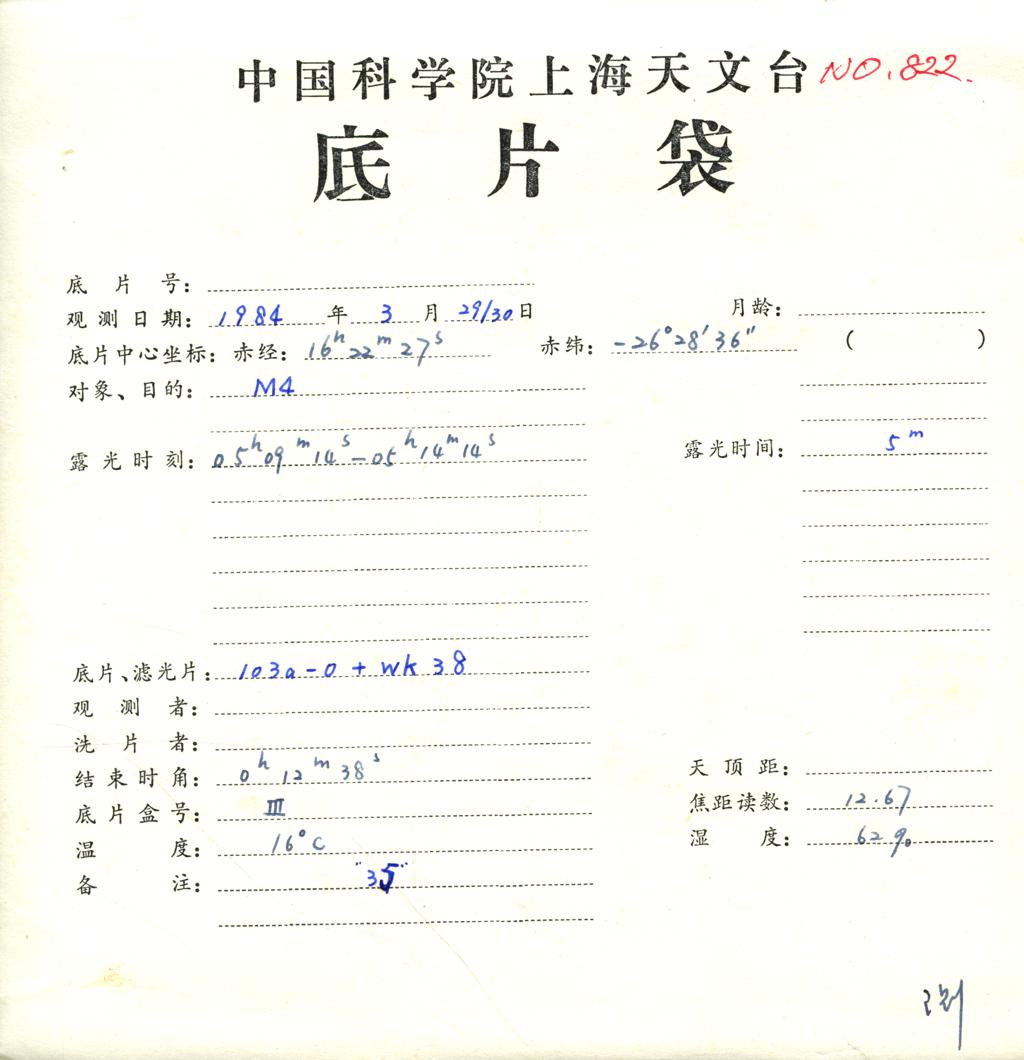 中国科学院上海天文台 NO.822.
底片袋
底片号:
观测日期: 1984 年 3 月 29/30 日 月龄:
底片中心坐标: 赤经: 16h 22m 27s 赤纬: -26°28′36″ ( )
对象、目的: M4
露光时刻: 05h 09m 14s - 05h 14m 14s 露光时间: 5m
底片、滤光片: 103a-0 + wk 38
观测者:
洗片者:
结束时角: 0h 12m 38s 天顶距:
底片盒号: III 焦距读数: 12.67
温度: 16°C 湿度: 62%
备注: "35"